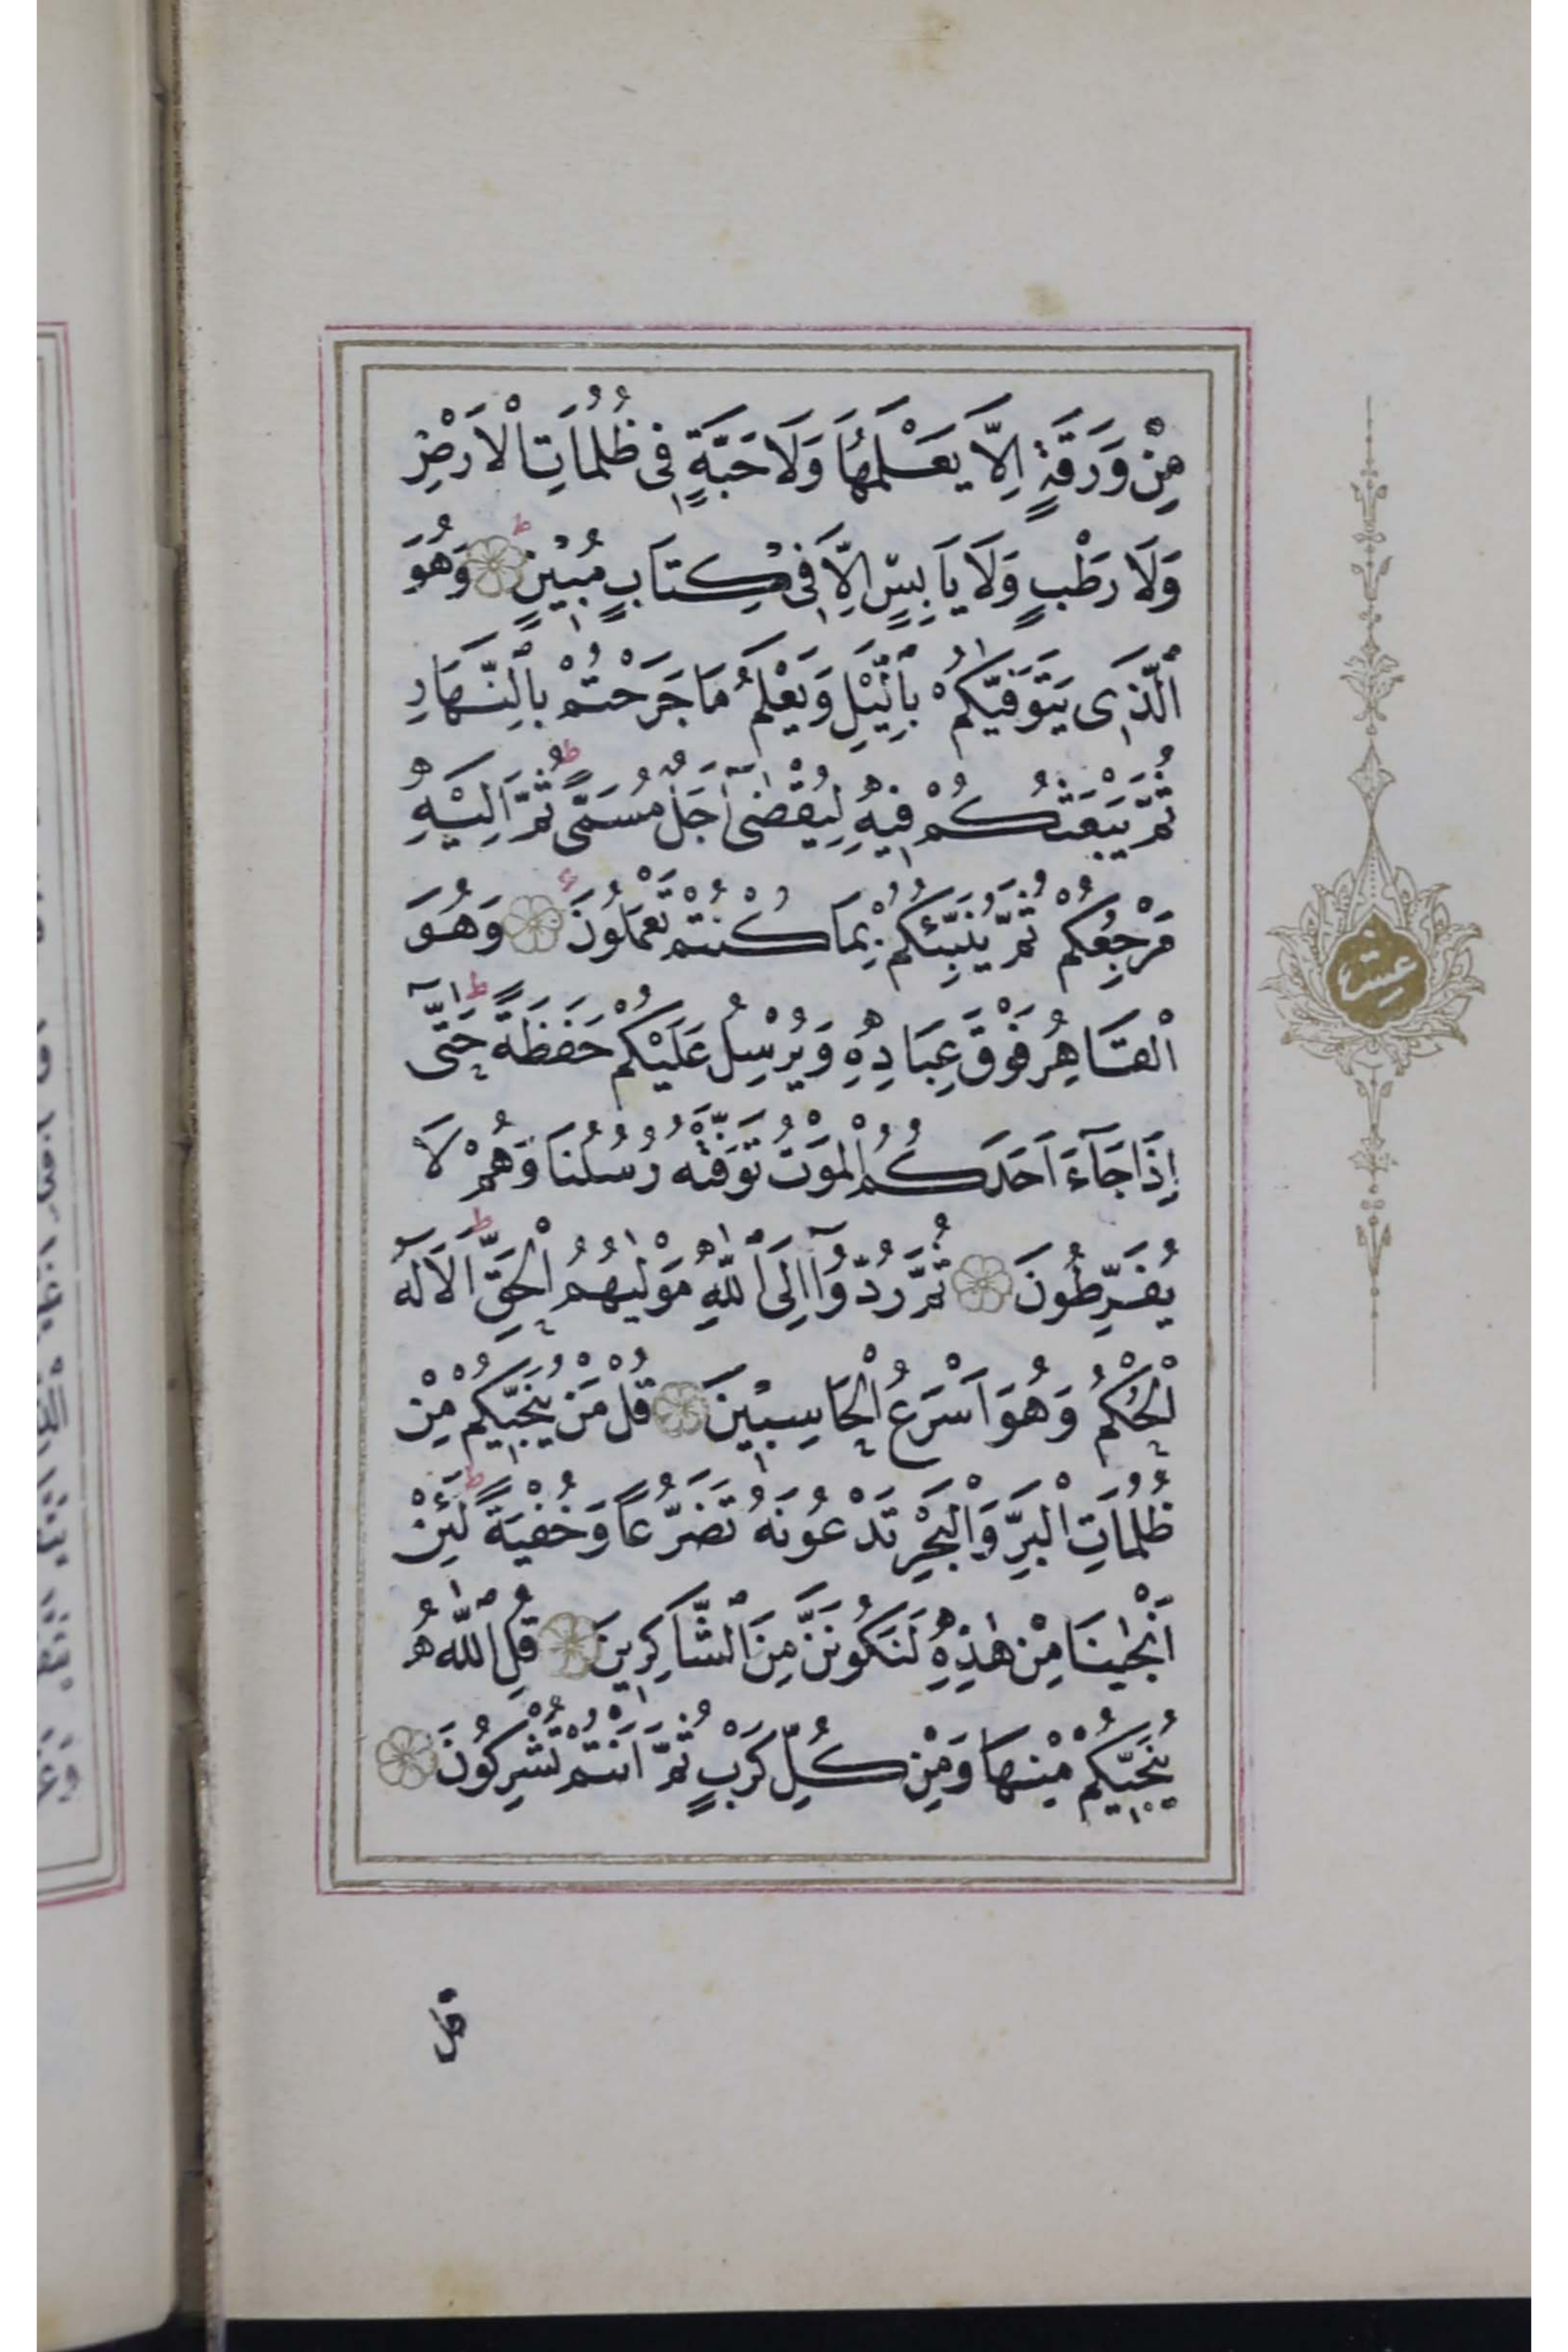 مِنْ وَرَقَةٍ اِلَّا يَعْلَمُهَا وَلَا حَبَّةٍ فِى ظُلُمَاتِ الْاَرْضِ
وَلَا رَطْبٍ وَلَا يَابِسٍ اِلَّا فِى كِتَابٍ مُبِيْنٍ وَهُوَ
الَّذِى يَتَوَفّٰيكُمْ بِالَّيْلِ وَيَعْلَمُ مَا جَرَحْتُمْ بِالنَّهَارِ
ثُمَّ يَبْعَثُكُمْ فِيهِ لِيُقْضٰٓى اَجَلٌ مُسَمًّى ثُمَّ اِلَيْهِ
مَرْجِعُكُمْ ثُمَّ يُنَبِّئُكُمْ بِمَا كُنْتُمْ تَعْمَلُونَ وَهُوَ
الْقَاهِرُ فَوْقَ عِبَادِهِ وَيُرْسِلُ عَلَيْكُمْ حَفَظَةً حَتّٰٓى
اِذَا جَآءَ اَحَدَكُمُ الْمَوْتُ تَوَفَّتْهُ رُسُلُنَا وَهُمْ لَا
يُفَرِّطُونَ ثُمَّ رُدُّوٓا اِلَى اللّٰهِ مَوْلٰيهُمُ الْحَقِّ اَلَا لَهُ
الْحُكْمُ وَهُوَ اَسْرَعُ الْحَاسِبِيْنَ قُلْ مَنْ يُنَجِّيكُمْ مِنْ
ظُلُمَاتِ الْبَرِّ وَالْبَحْرِ تَدْعُونَهُ تَضَرُّعًا وَخُفْيَةً لَئِنْ
اَنْجٰينَا مِنْ هٰذِهِ لَنَكُونَنَّ مِنَ الشَّاكِرِينَ قُلِ اللّٰهُ
يُنَجِّيكُمْ مِنْهَا وَمِنْ كُلِّ كَرْبٍ ثُمَّ اَنْتُمْ تُشْرِكُونَ
عشر
قل